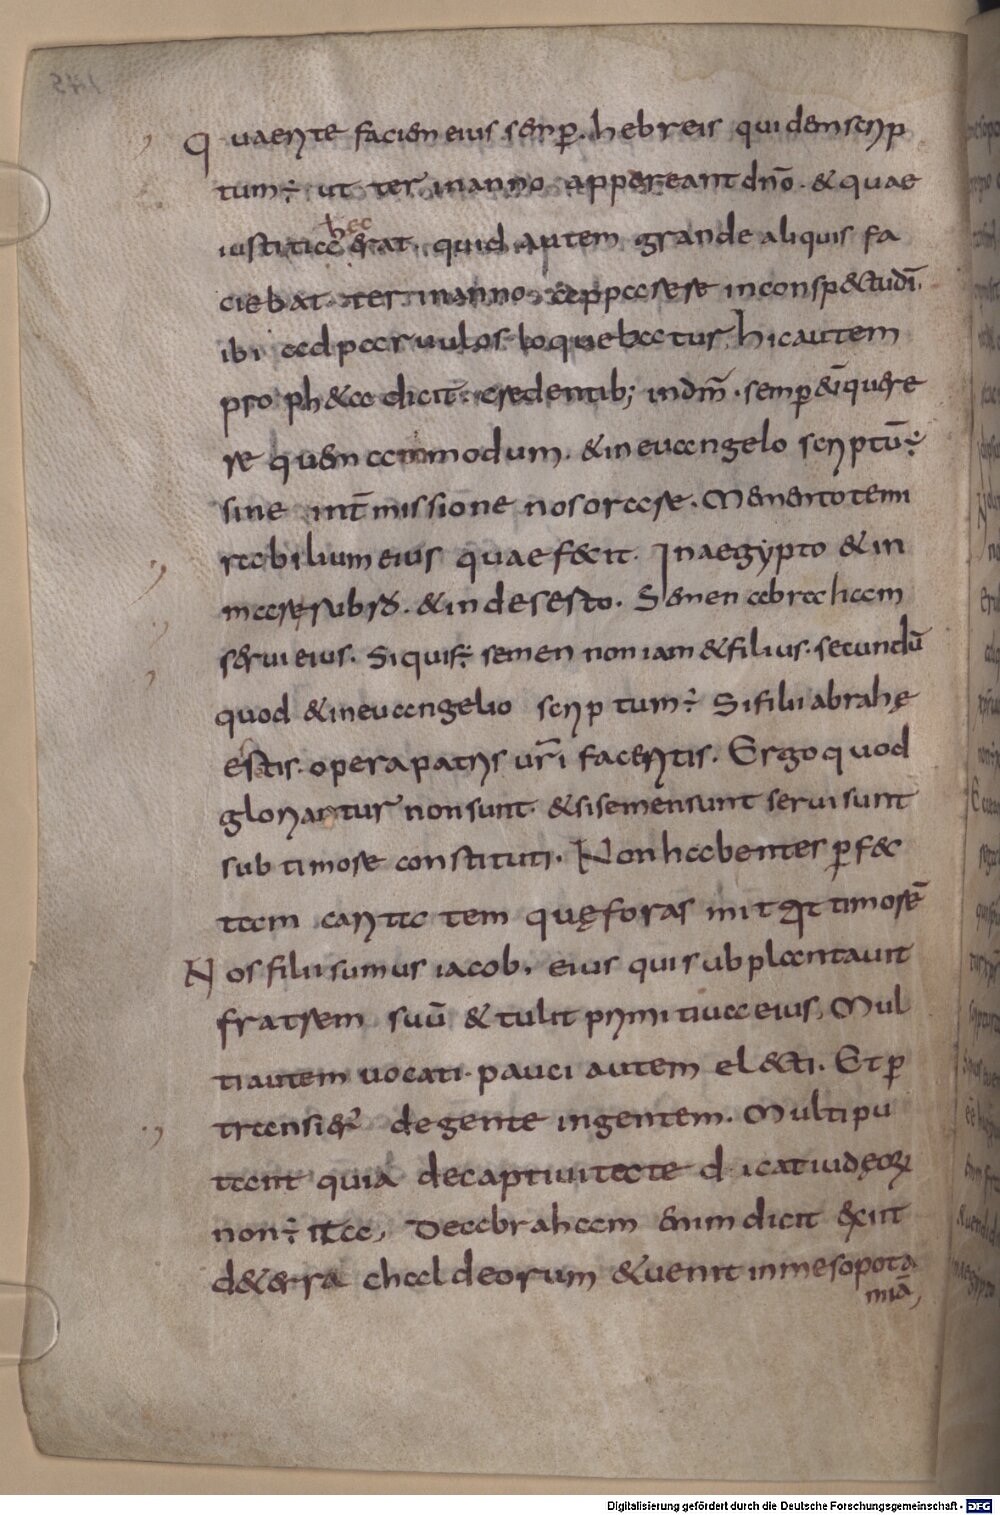 Quaerite faciem eius semp. hebreis quidem scrip
tum ÷ ut ter in anno appareant dño. & quae
iustitia hec erat. quid autem grande aliquis fa
ciebat ter in anno apparere in conspectu dī.
ibi ad paruulos loquebatur, hic autem
propheta dicit credentib; in dm̄. semp eī quere
re quem ammodum. & in euangelo scriptū ÷
sine int̄missione nos orare. Mementote mi
rabilium eius quae fecit. In aegypto & in
mare rubro. & in deserto. Semen abraham
serui eius. Si quis ÷ semen non iam & filius. secundū
quod & in euangelio scriptum ÷ Si filii abrahę
estis. opera patris ur̄i faceritis. Ergo quod
gloriantur non sunt. & si semen sunt serui sunt
sub timore constituti. Non habentes pfec
tam caritatem quę foras mittit timorē
Nos filii sumus iacob. eius qui subplantauit
fratrem suū & tulit primitiua eius, Mul
ti autem uocati. pauci autem electi. Et p
transier̄ de gente in gentem. Multi pu
tant quia de captiuitate dicat iudęorꝝ
non ÷ ita, De abraham enim dicit exiit
de terra chaldeorum & uenit in mesopota
miā,
Digitalisierung gefördert durch die Deutsche Forschungsgemeinschaft - DFG